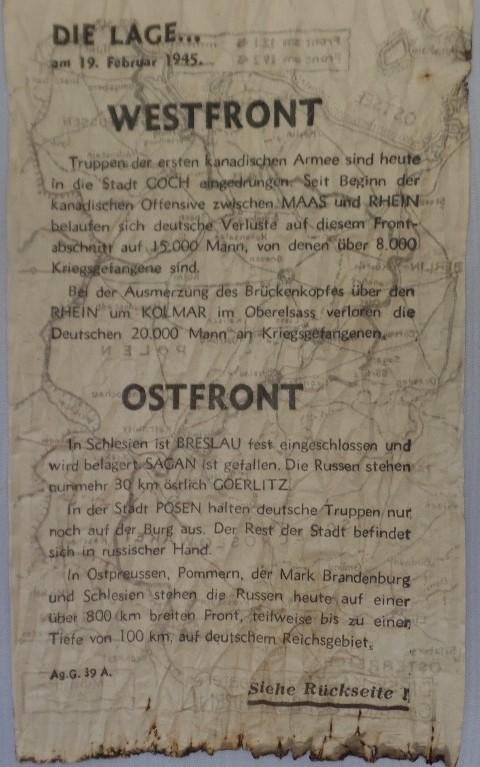 DIE LAGE...
am 19. Februar 1945.
WESTFRONT
Truppen der ersten kanadischen Armee sind heute
in die Stadt GOCH eingedrungen. Seit Beginn der
kanadischen Offensive zwischen MAAS und RHEIN
belaufen sich deutsche Verluste auf diesem Front-
abschnitt auf 15.000 Mann, von denen über 8.000
Kriegsgefangene sind.
Bei der Ausmerzung des Brückenkopfes über den
RHEIN um KOLMAR im Oberelsass verloren die
Deutschen 20.000 Mann an Kriegsgefangenen.
POLEN
OSTFRONT
In Schlesien ist BRESLAU fest eingeschlossen und
wird belagert. SAGAN ist gefallen. Die Russen stehen
nunmehr 30 km östlich GOERLITZ.
In der Stadt POSEN halten deutsche Truppen nur
noch auf der Burg aus. Der Rest der Stadt befindet
sich in russischer Hand.
In Ostpreussen, Pommern, der Mark Brandenburg
und Schlesien stehen die Russen heute auf einer
über 800 km breiten Front, teilweise bis zu einer
Tiefe von 100 km, auf deutschem Reichsgebiet.
Ag.G. 39 A.
Siehe Rückseite !